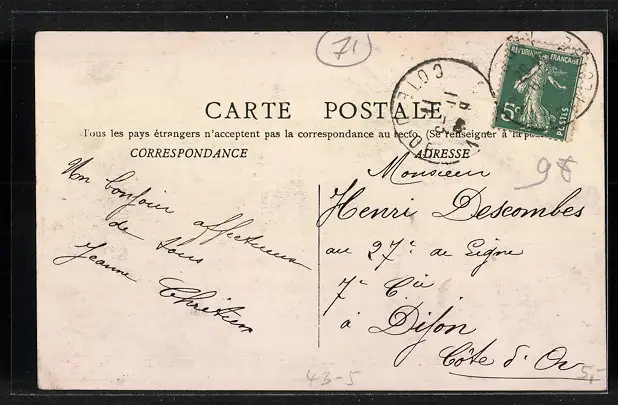 71
RÉPUBLIQUE FRANÇAISE
5c
POSTES
COTE D'OR
CARTE POSTALE
Tous les pays étrangers n'acceptent pas la correspondance au recto. (Se renseigner à la poste)
CORRESPONDANCE
ADRESSE
98
Un bonjour affectueux
de tous
Jeanne Chrétien
Monsieur
Henri Descombes
au 27e de Ligne
7e Cie
à Dijon
Côte d'Or
43-5
5,-